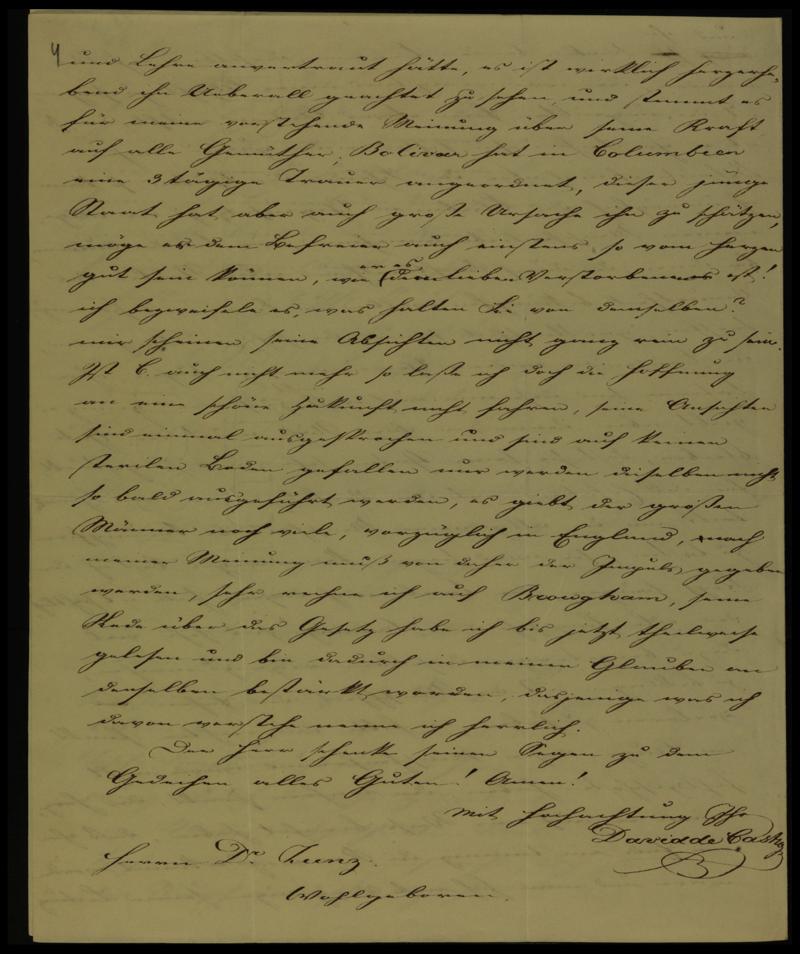 4
und Lehre anvertraut hätte, es ist wirklich herzerhe-
bend ihn Ueberall geachtet zu sehen, und stimmt es
für meine vorstehende Meinung über seine Kraft
auf alle Gemüther; Bolivar hat in Columbien
eine 3 tägige Trauer angeordnet, dieser junge
Staat hat aber auch große Ursache ihn zu schätzen,
möge es dem Befreier auch einstens so vom Herzen
gut sein können, wie er es dem lieben Verstorbenen ist!
ich bezweifele es, was halten Sie von demselben?
mir scheinen seine Absichten nicht ganz rein zu sein.
Ist C. auch nicht mehr so laße ich doch die Hoffnung
an eine schöne Zukunft nicht fahren, seine Ansichten
sind einmal ausgesprochen und sind auf keinen
sterilen Boden gefallen nur werden dieselben nicht
so bald ausgeführt werden, es giebt der großen
Männer noch viele, vorzüglich in England, nach
meiner Meinung muß von daher der Impuls gegeben
werden, sehr rechne ich auf Brougham, seine
Rede über das Gesetz habe ich bis jetzt theilweise
gelesen und bin dadurch in meinen Glauben an
denselben bestärkt worden, dasjenige was ich
davon verstehe nenne ich herrlich.
Der Herr schenke seinen Segen zu dem
Gedeihen alles Guten! Amen!
Mit Hochachtung Ihr
David de Castro
Herrn Dr Zunz.
Wohlgeboren.